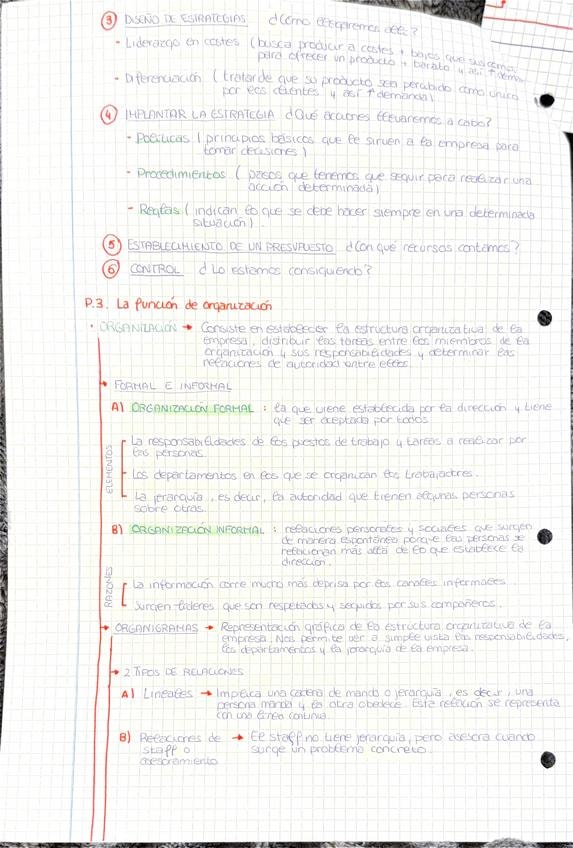 ③ DISEÑO DE ESTRATEGIAS ¿Cómo llegaremos allí?
- Liderazgo en costes (busca producir a costes + bajos que sus comp.
para ofrecer un producto + barato y así ↑ dem.
- Diferenciación (tratar de que su producto sea percibido como único
por los clientes y así ↑ demanda)
④ IMPLANTAR LA ESTRATEGIA ¿Qué acciones llevaremos a cabo?
- Políticas (principios básicos que le sirven a la empresa para
tomar decisiones)
- Procedimientos (pasos que tenemos que seguir para realizar una
acción determinada)
- Reglas (indican lo que se debe hacer siempre en una determinada
situación).
⑤ ESTABLECIMIENTO DE UN PRESUPUESTO ¿Con qué recursos contamos?
⑥ CONTROL ¿Lo estamos consiguiendo?
P.3. La función de organización
· ORGANIZACIÓN → Consiste en establecer la estructura organizativa de la
empresa, distribuir las tareas entre los miembros de la
organización y sus responsabilidades y determinar las
relaciones de autoridad entre ellos.
→ FORMAL E INFORMAL
A) ORGANIZACIÓN FORMAL : la que viene establecida por la dirección y tiene
que ser aceptada por todos
ELEMENTOS
La responsabilidades de los puestos de trabajo y tareas a realizar por
las personas.
Los departamentos en los que se organizan los trabajadores.
La jerarquía, es decir, la autoridad que tienen algunas personas
sobre otras.
B) ORGANIZACIÓN INFORMAL : relaciones personales y sociales que surgen
de manera espontánea porque las personas se
relacionan más allá de lo que establece la
dirección.
RAZONES
La información corre mucho más deprisa por los canales informales.
Surgen líderes que son respetados y seguidos por sus compañeros.
→ ORGANIGRAMAS → Representación gráfica de la estructura organizativa de la
empresa. Nos permite ver a simple vista las responsabilidades,
los departamentos y la jerarquía de la empresa.
→ 2 TIPOS DE RELACIONES
A) Lineales → Implica una cadena de mando o jerarquía, es decir, una
persona manda y la otra obedece. Esta relación se representa
con una línea continua.
B) Relaciones de → El staff no tiene jerarquía, pero asesora cuando
staff o surge un problema concreto.
asesoramiento